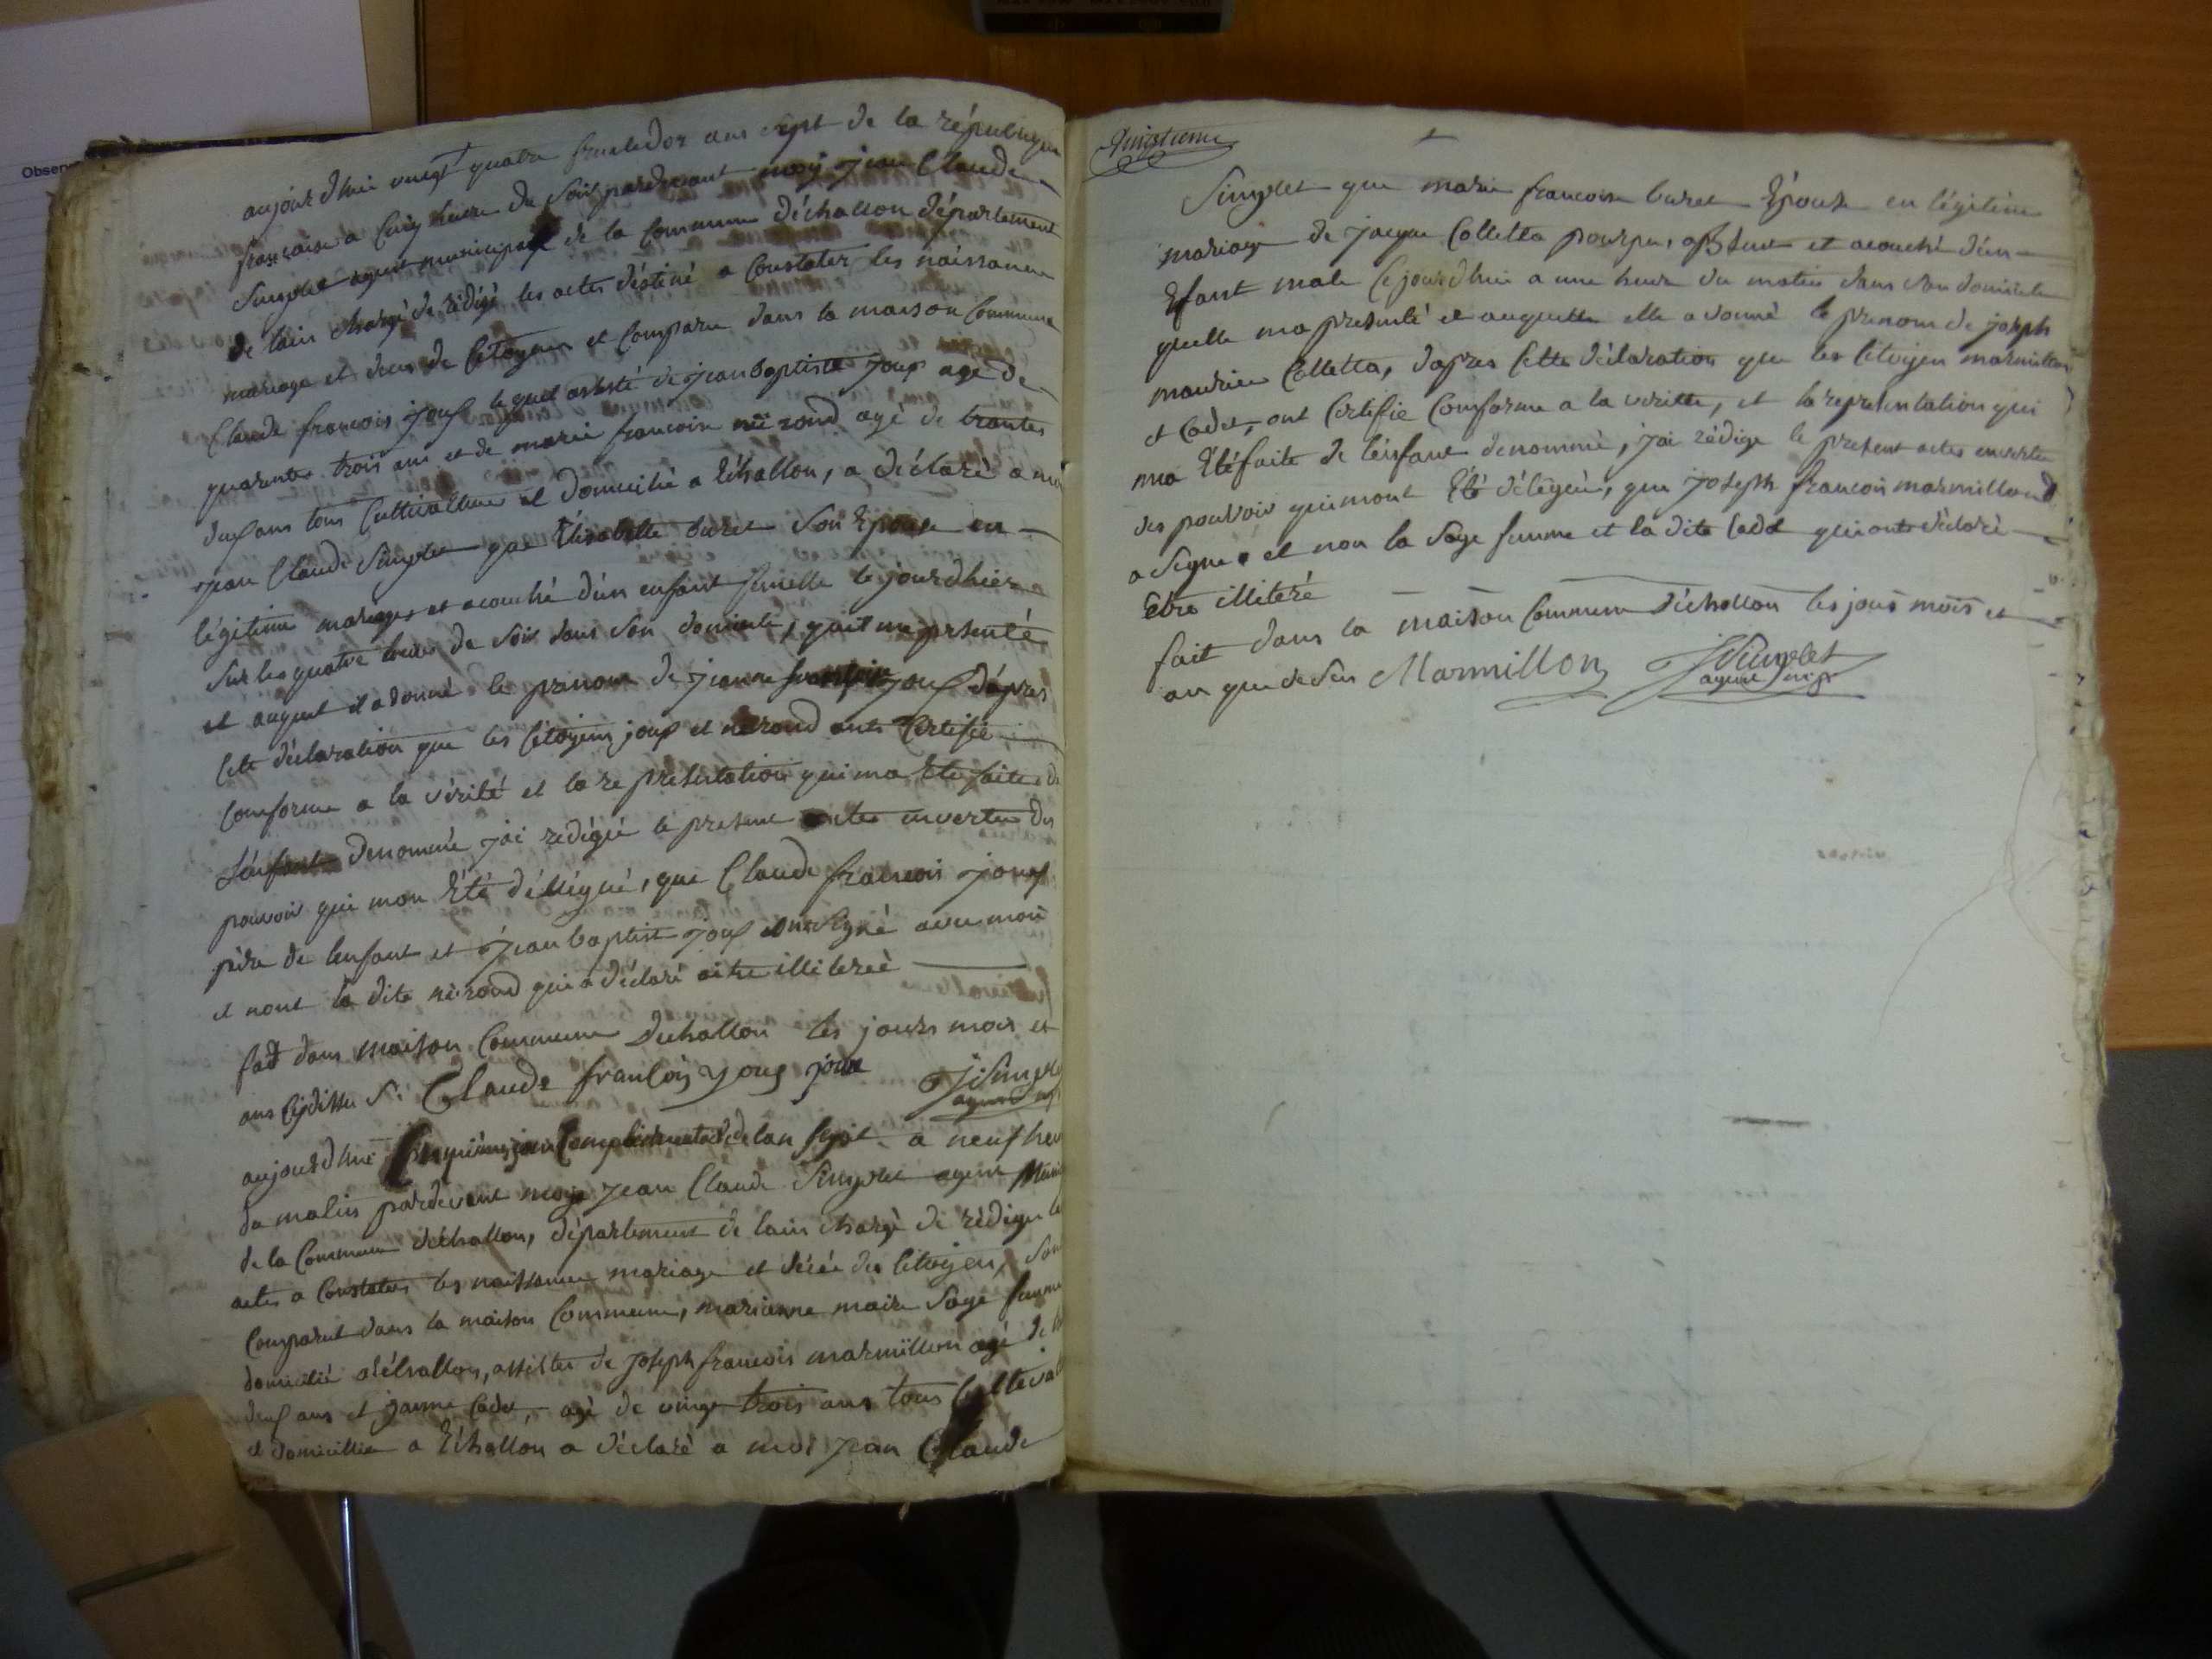 Obser
aujourdhui vingt quatre fructidor ans sept de la républiqu
francaise a Cinq heure du Soir pardevant moy jean Claude
Simplet agent municipale de la Commune déchallon département
de lain chargé de rédigé les actes déstiné a Constater les naissance
mariage et deces de Citoyens et Comparu dans la maison Commune
Claude francois joux lequel assisté de jean baptiste joux agé de
quarente trois ans et de marie francoise nérond agé de trantes
deux ans tous Cultivatteur et domicilié a Echallon, a déclaré a moi
jean Claude Simplet que Elisabette buret Son Epouse en
légitime mariages et acouché dun enfant femelle le jourdhier
Sur les quatre heures de Soir dans Son domicile, quil ma présenté
et auquel il a donné le prenom de jeanne joux daprès
Cete déclaration que les Citoyens joux et nérond onts Certifié
Comforme a la vérité et la representation qui ma Eté faite d
Lénfant denommé jai redigée le present actes envertu des
pouvoir qui mon Eté délégué, que Claude francois joux
père de lenfant et jean baptiste joux onts Signé avec moi
et nont la dite nérond qui a déclaré aitre illiteréé
fait dans maison Commune déchallon les jours mois et
ans Cydissu Si Claude françois joux joux JCSimplet
agent
aujourdhui Cinquième jour Complémentaire de lan Sept a neuf heu
du matin pardevant moy jean Claude Simplet agent Muni
de la Commune déchallon, département de lain chargé de rédiger le
actes a Constater les naissance mariage et décés des Citoyen, Son
Comparut dans la maison Commune, marianne maire Sage famme
domicilié a échallon, assistée de joseph francois marmillon agé de
deux ans et janne Cadet, agé de vingt trois ans tous Cultivat
et domicillié a Echallon a déclaré a moi jean Claude
vingtieme
Simplet que marie francoise buret Epouse en légitime
mariage de jacque Colletta pourpu, absent et acouché dún
Efant male Cejourdhui a une heure du matin dans son domicile
quelle ma presenté et auquelle elle a donné le prenom de joseph
maurice Colletta, daprès Cette déclaration que les Citoyen marmillon
et Cadet, ont Certifié Comforme a la veritte, et la representation qui
ma Eté faite de lénfant denommé, jai rédigé le present actes envertu
des pouvoir qui mont Eté délégué, que joseph francois marmillond
a Signé et non la Sage famme et la dite Cadet qui onts déclaré
Etre illiteré
fait dans la maison Commune déchallon les jours mois et
an que desu Marmillon JCSimplet
agent